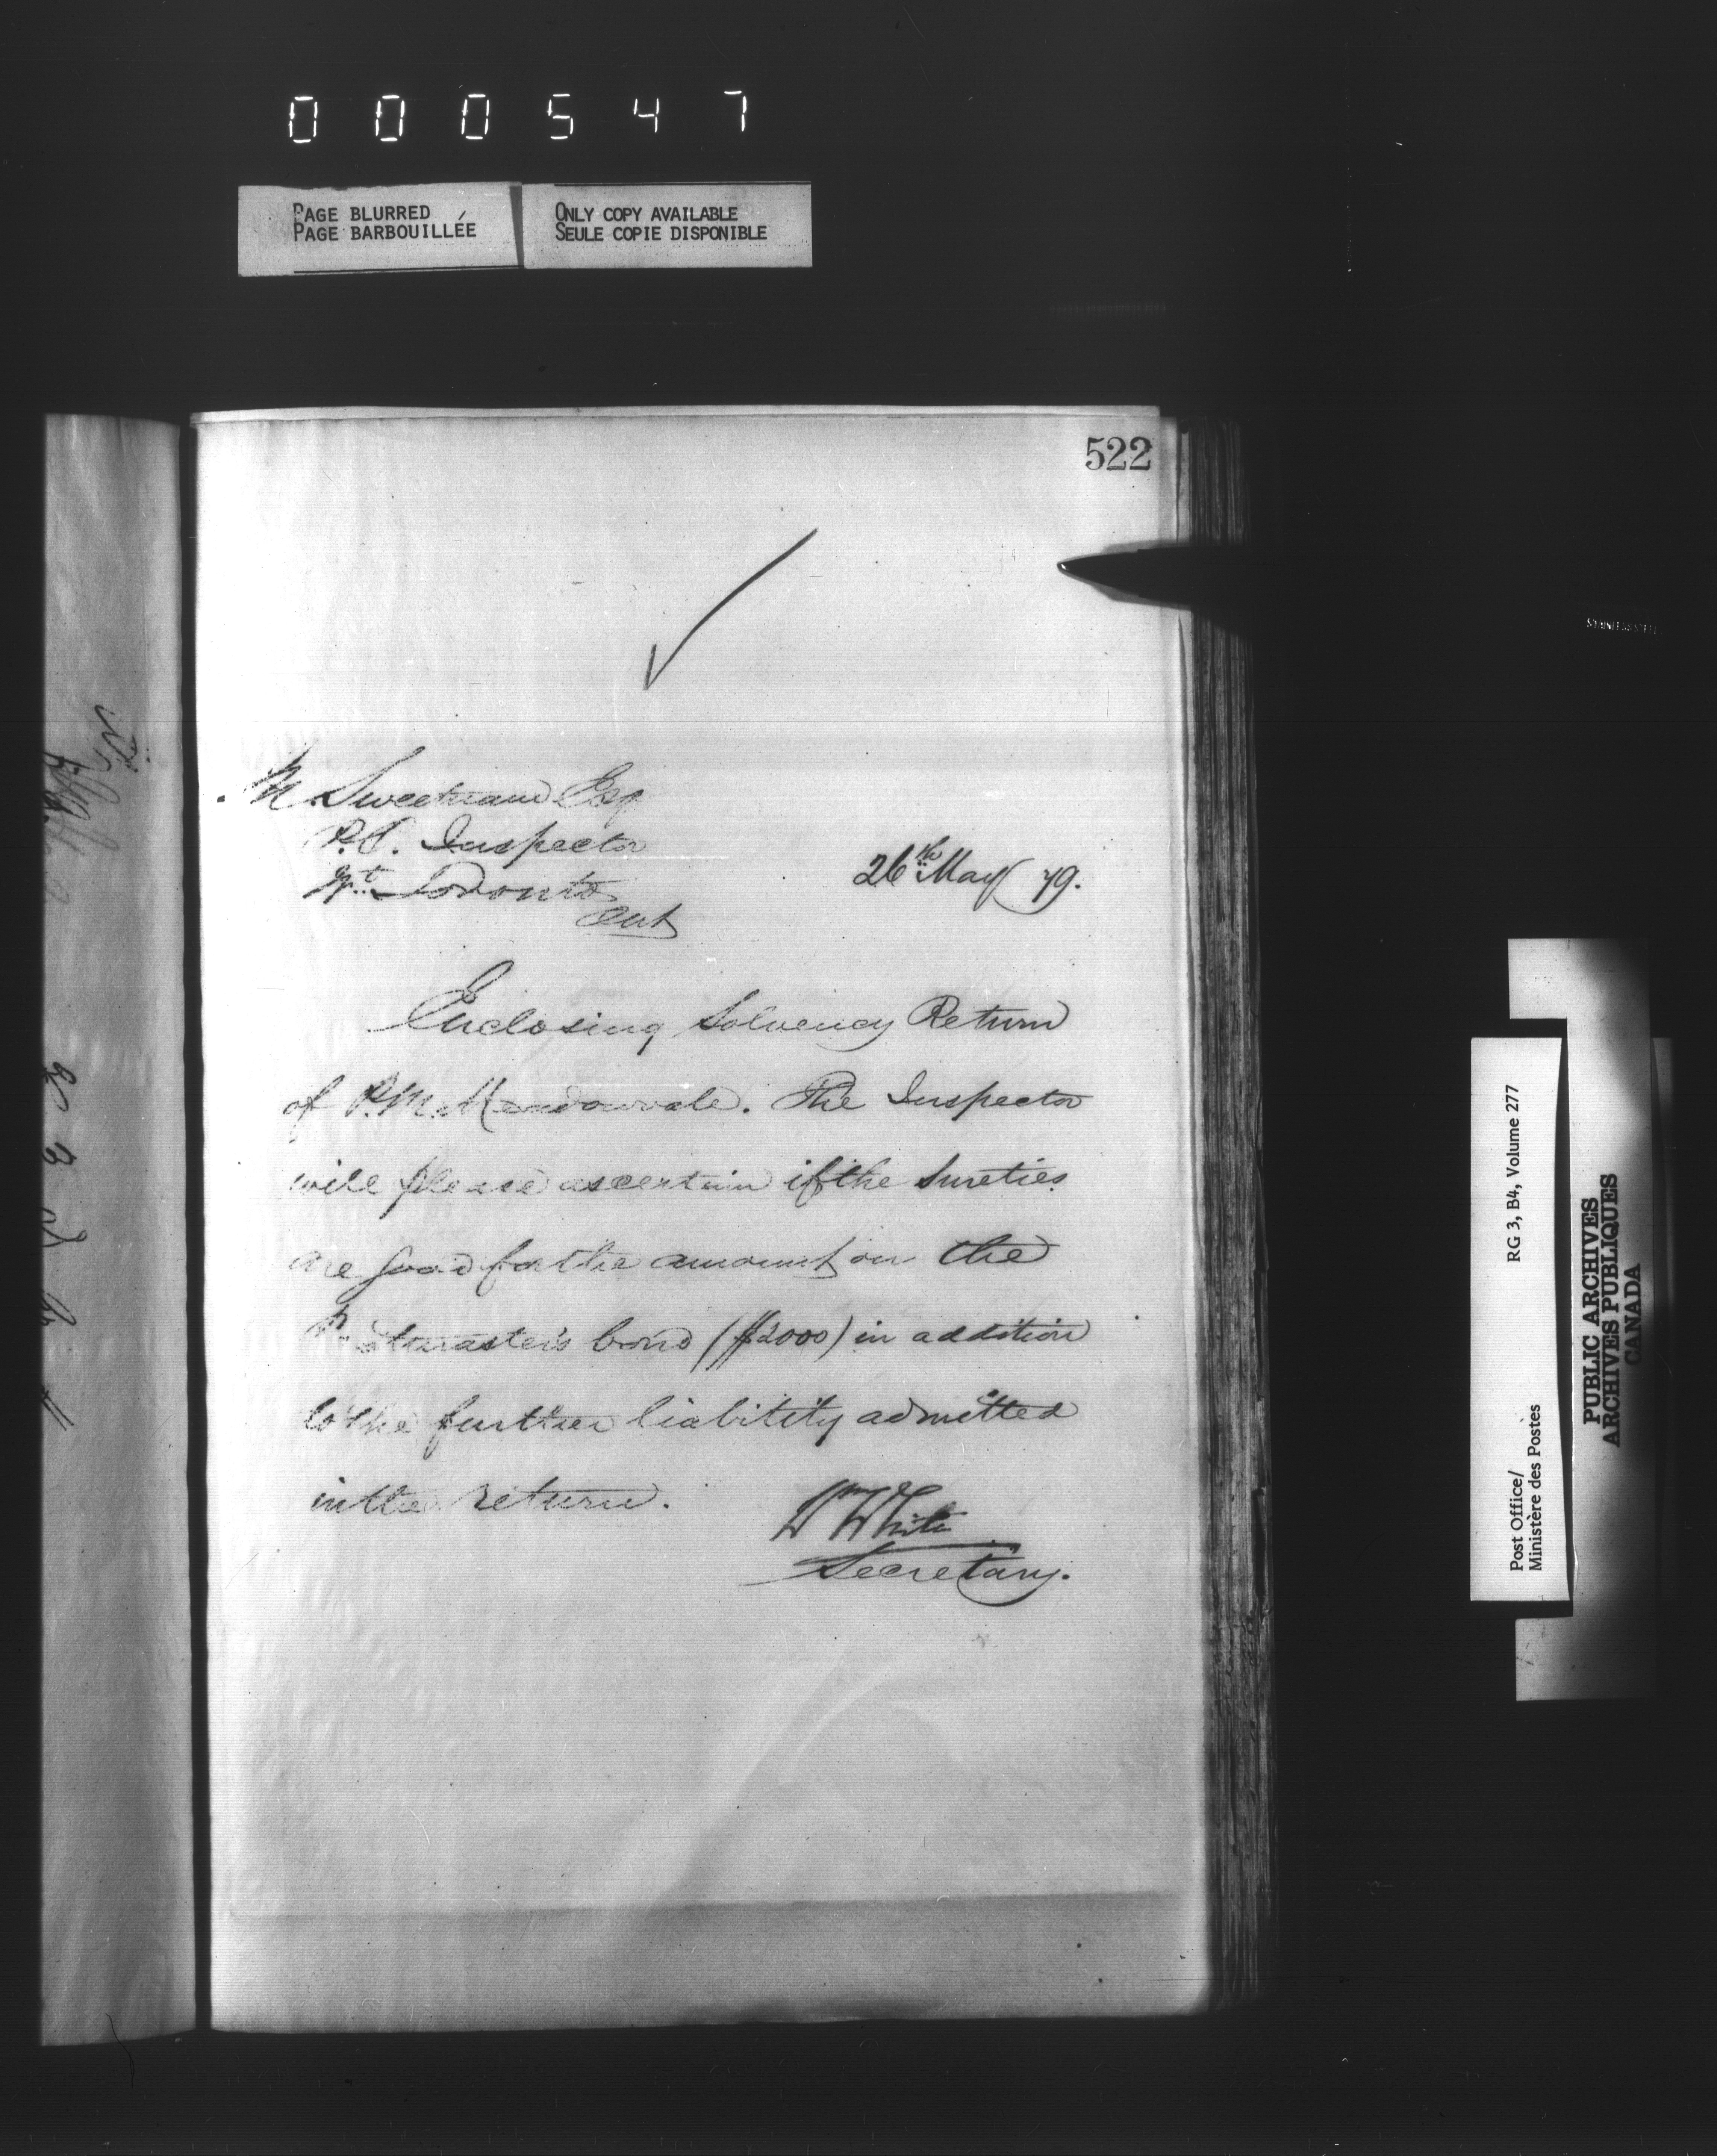 000547
PAGE BLURRED
PAGE BARBOUILLÉE
ONLY COPY AVAILABLE
SEULE COPIE DISPONIBLE
522
M. Sweetnam Esq
P.O. Inspector
Toronto
Ont
26th May 79.
Enclosing Solvency Return
of P.M. Meadowvale. The Inspector
will please ascertain if the sureties
are good for the amount on the
Postmaster's bond ($2000) in addition
to the further liability admitted
in the return.
Wm White
Secretary.
Post Office/
Ministère des Postes
RG 3, B4, Volume 277
PUBLIC ARCHIVES
ARCHIVES PUBLIQUES
CANADA